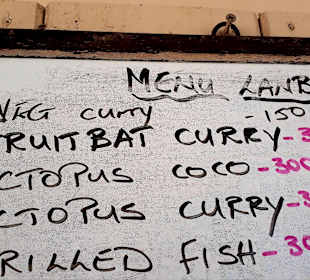 MENU LANB
VEG curry -150
FRUITBAT CURRY-3
OCTOPUS COCO-300
OCTOPUS CURRY-3
GRILLED FISH-30